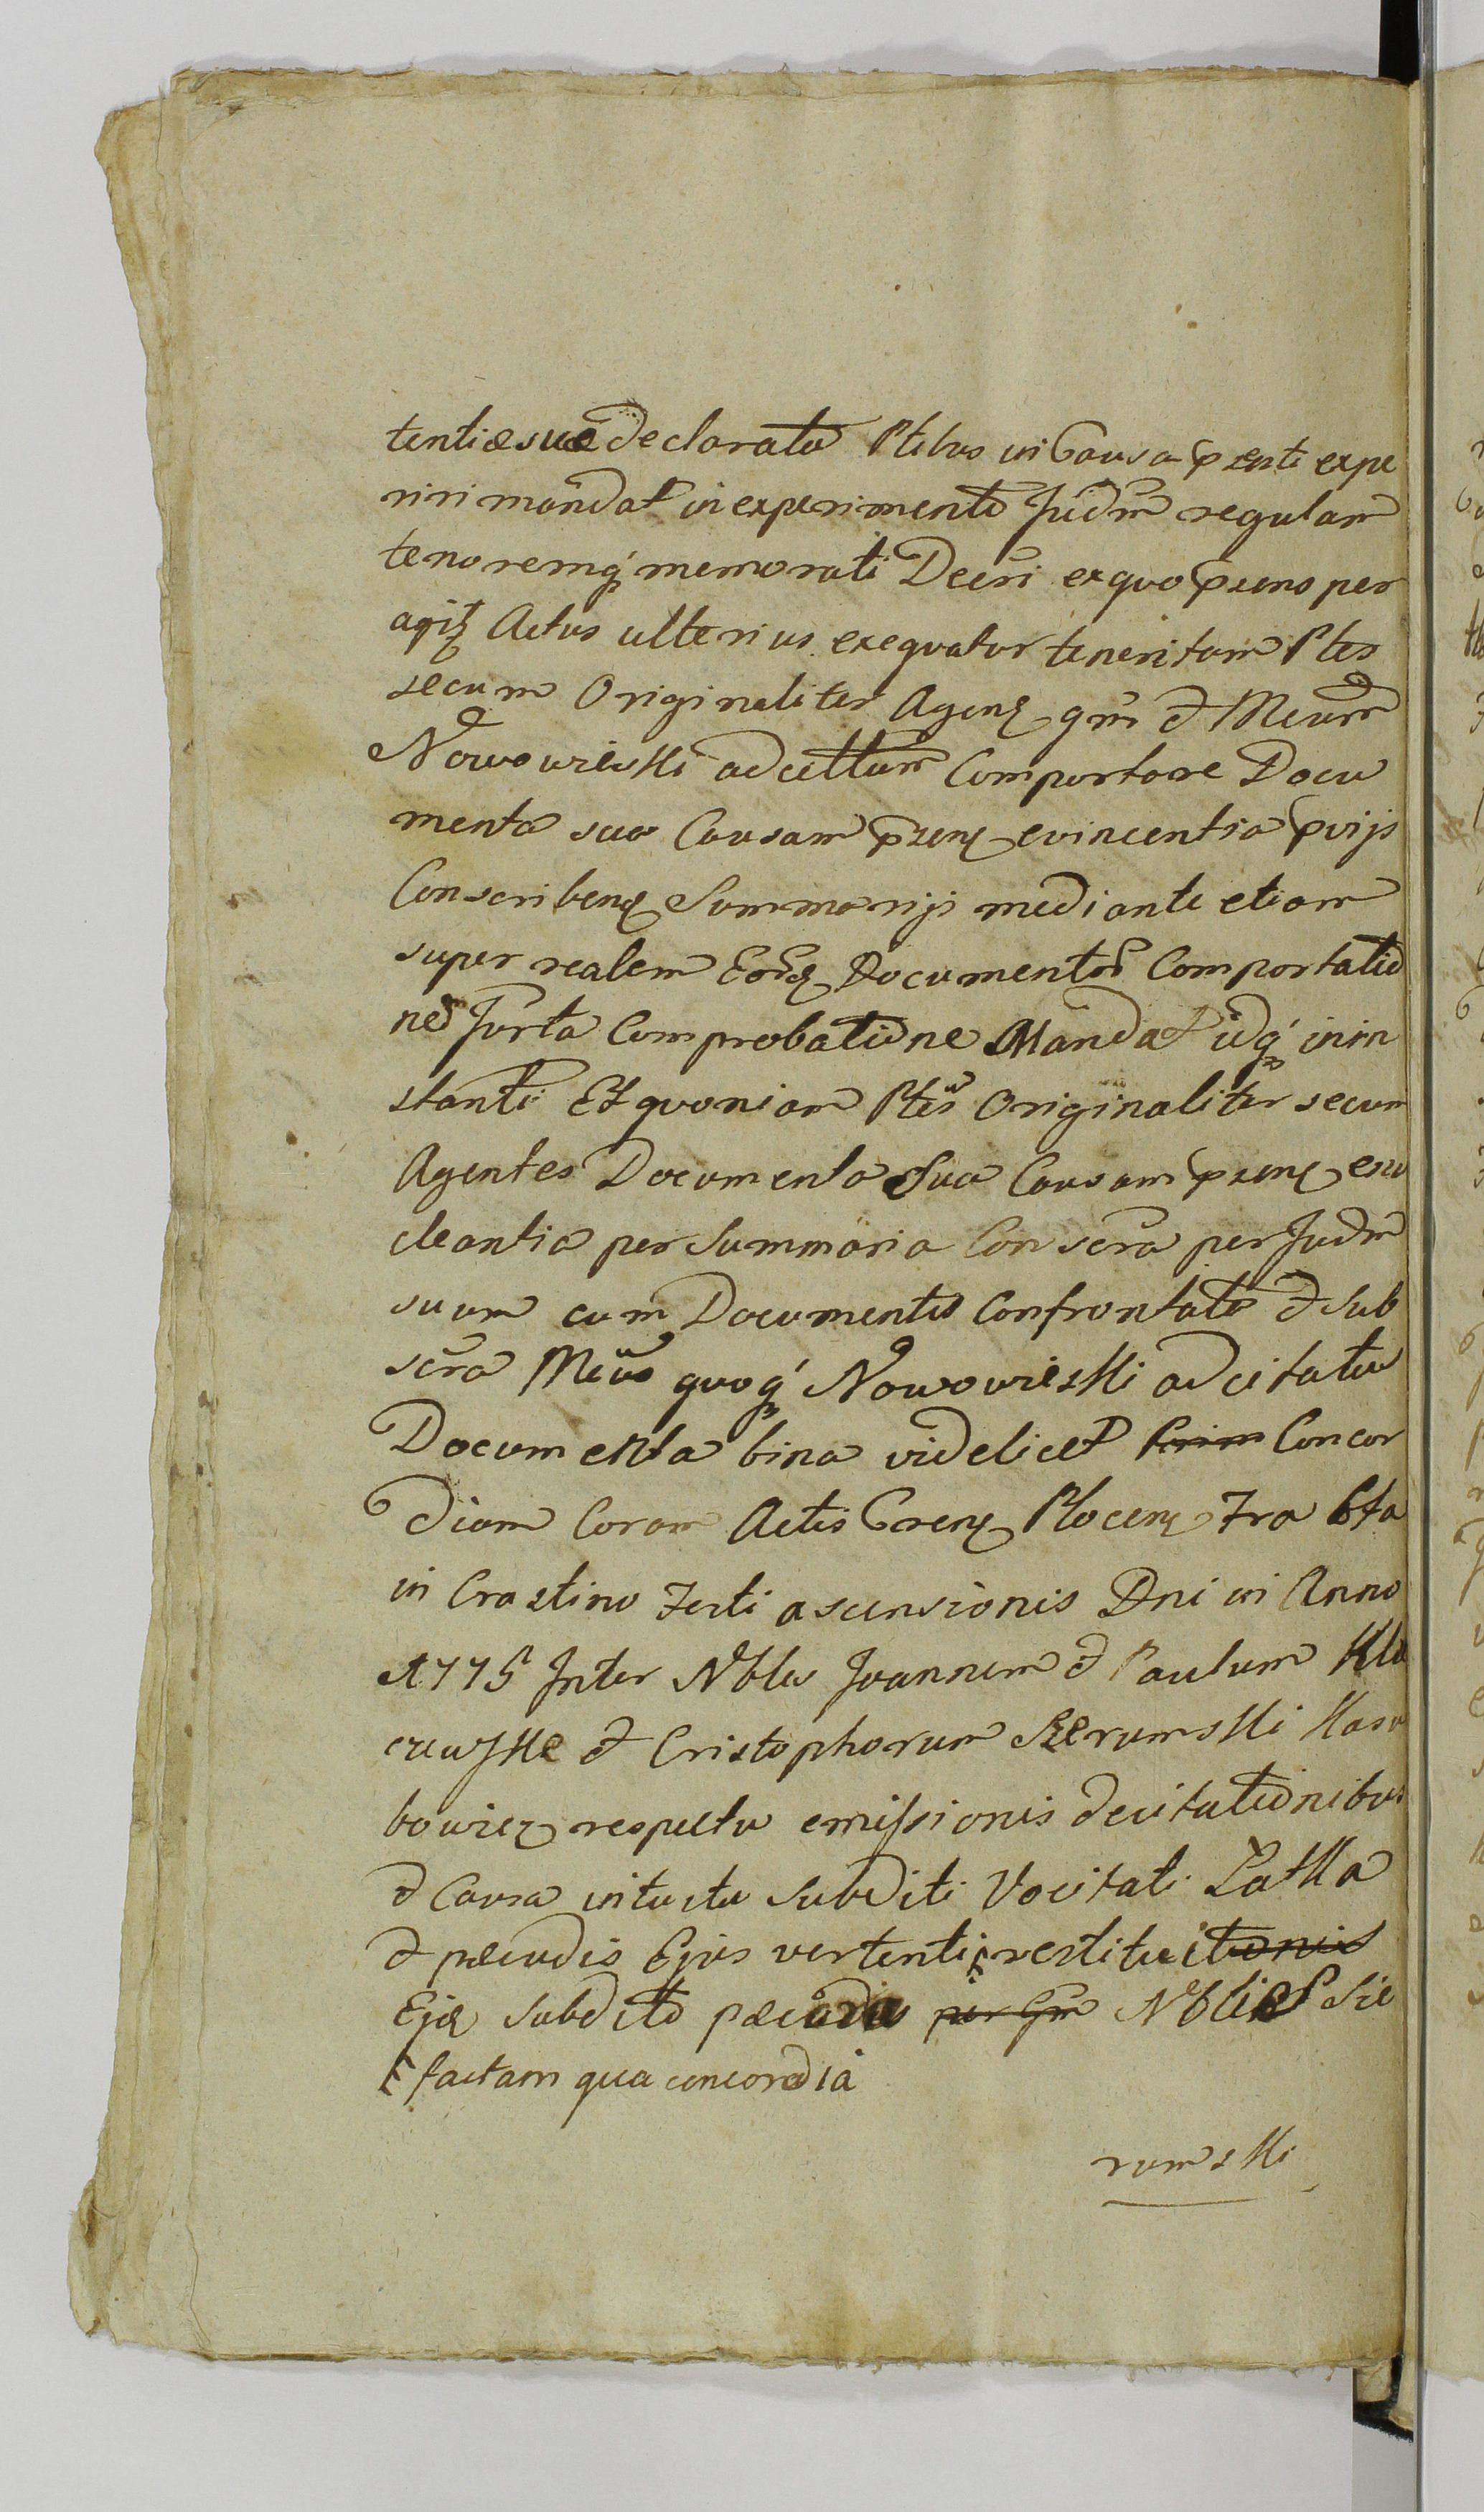 tentiæ suæ declarata Ptibus in Causa pznti expe
riri mandat in experimento Judm regulam
tenoremq́ memorati Decri ex quo pzens per
agitz Actus ulterius exequatur tenentam Ptes
secum Originaliter Agenz qm & Mcum
Nowowieski adcitatum Comportare Docu
menta sua Causam pzenz evincentia pvijs
Conscribenz Summarijs mediante etiam
super realem Eorz Documentor Comportatio
ne Jurta Comprobatione Mandat idq́ in in
stanti Et quoniam Ptes Originaliter secum
Agentes Documenta Sua Causam pzenz enu
cleantia per Summaria Conscra per Judm
suum cum Documentis Confrontata & sub
scra Mcus quoq́ Nowowieski adcitatus
Documenta bina videlicet Concor
diam Coram Actis Crenz Plocenz Fra 6ta
in Crastino Festi ascensionis Dni in Anno
1775 Inter Nbles Joannem & Paulum Klu
czewskie & Cristophorum Szerumski Kasu
bowicz respectu emissionis de citationibus
& Causa intuitu subditi Vocitati Łatka
& pecudis Ejus vertenti restitutionis
Ejz subdito pecudis per Gm Nblis Sze
factam qua concordia
rumski